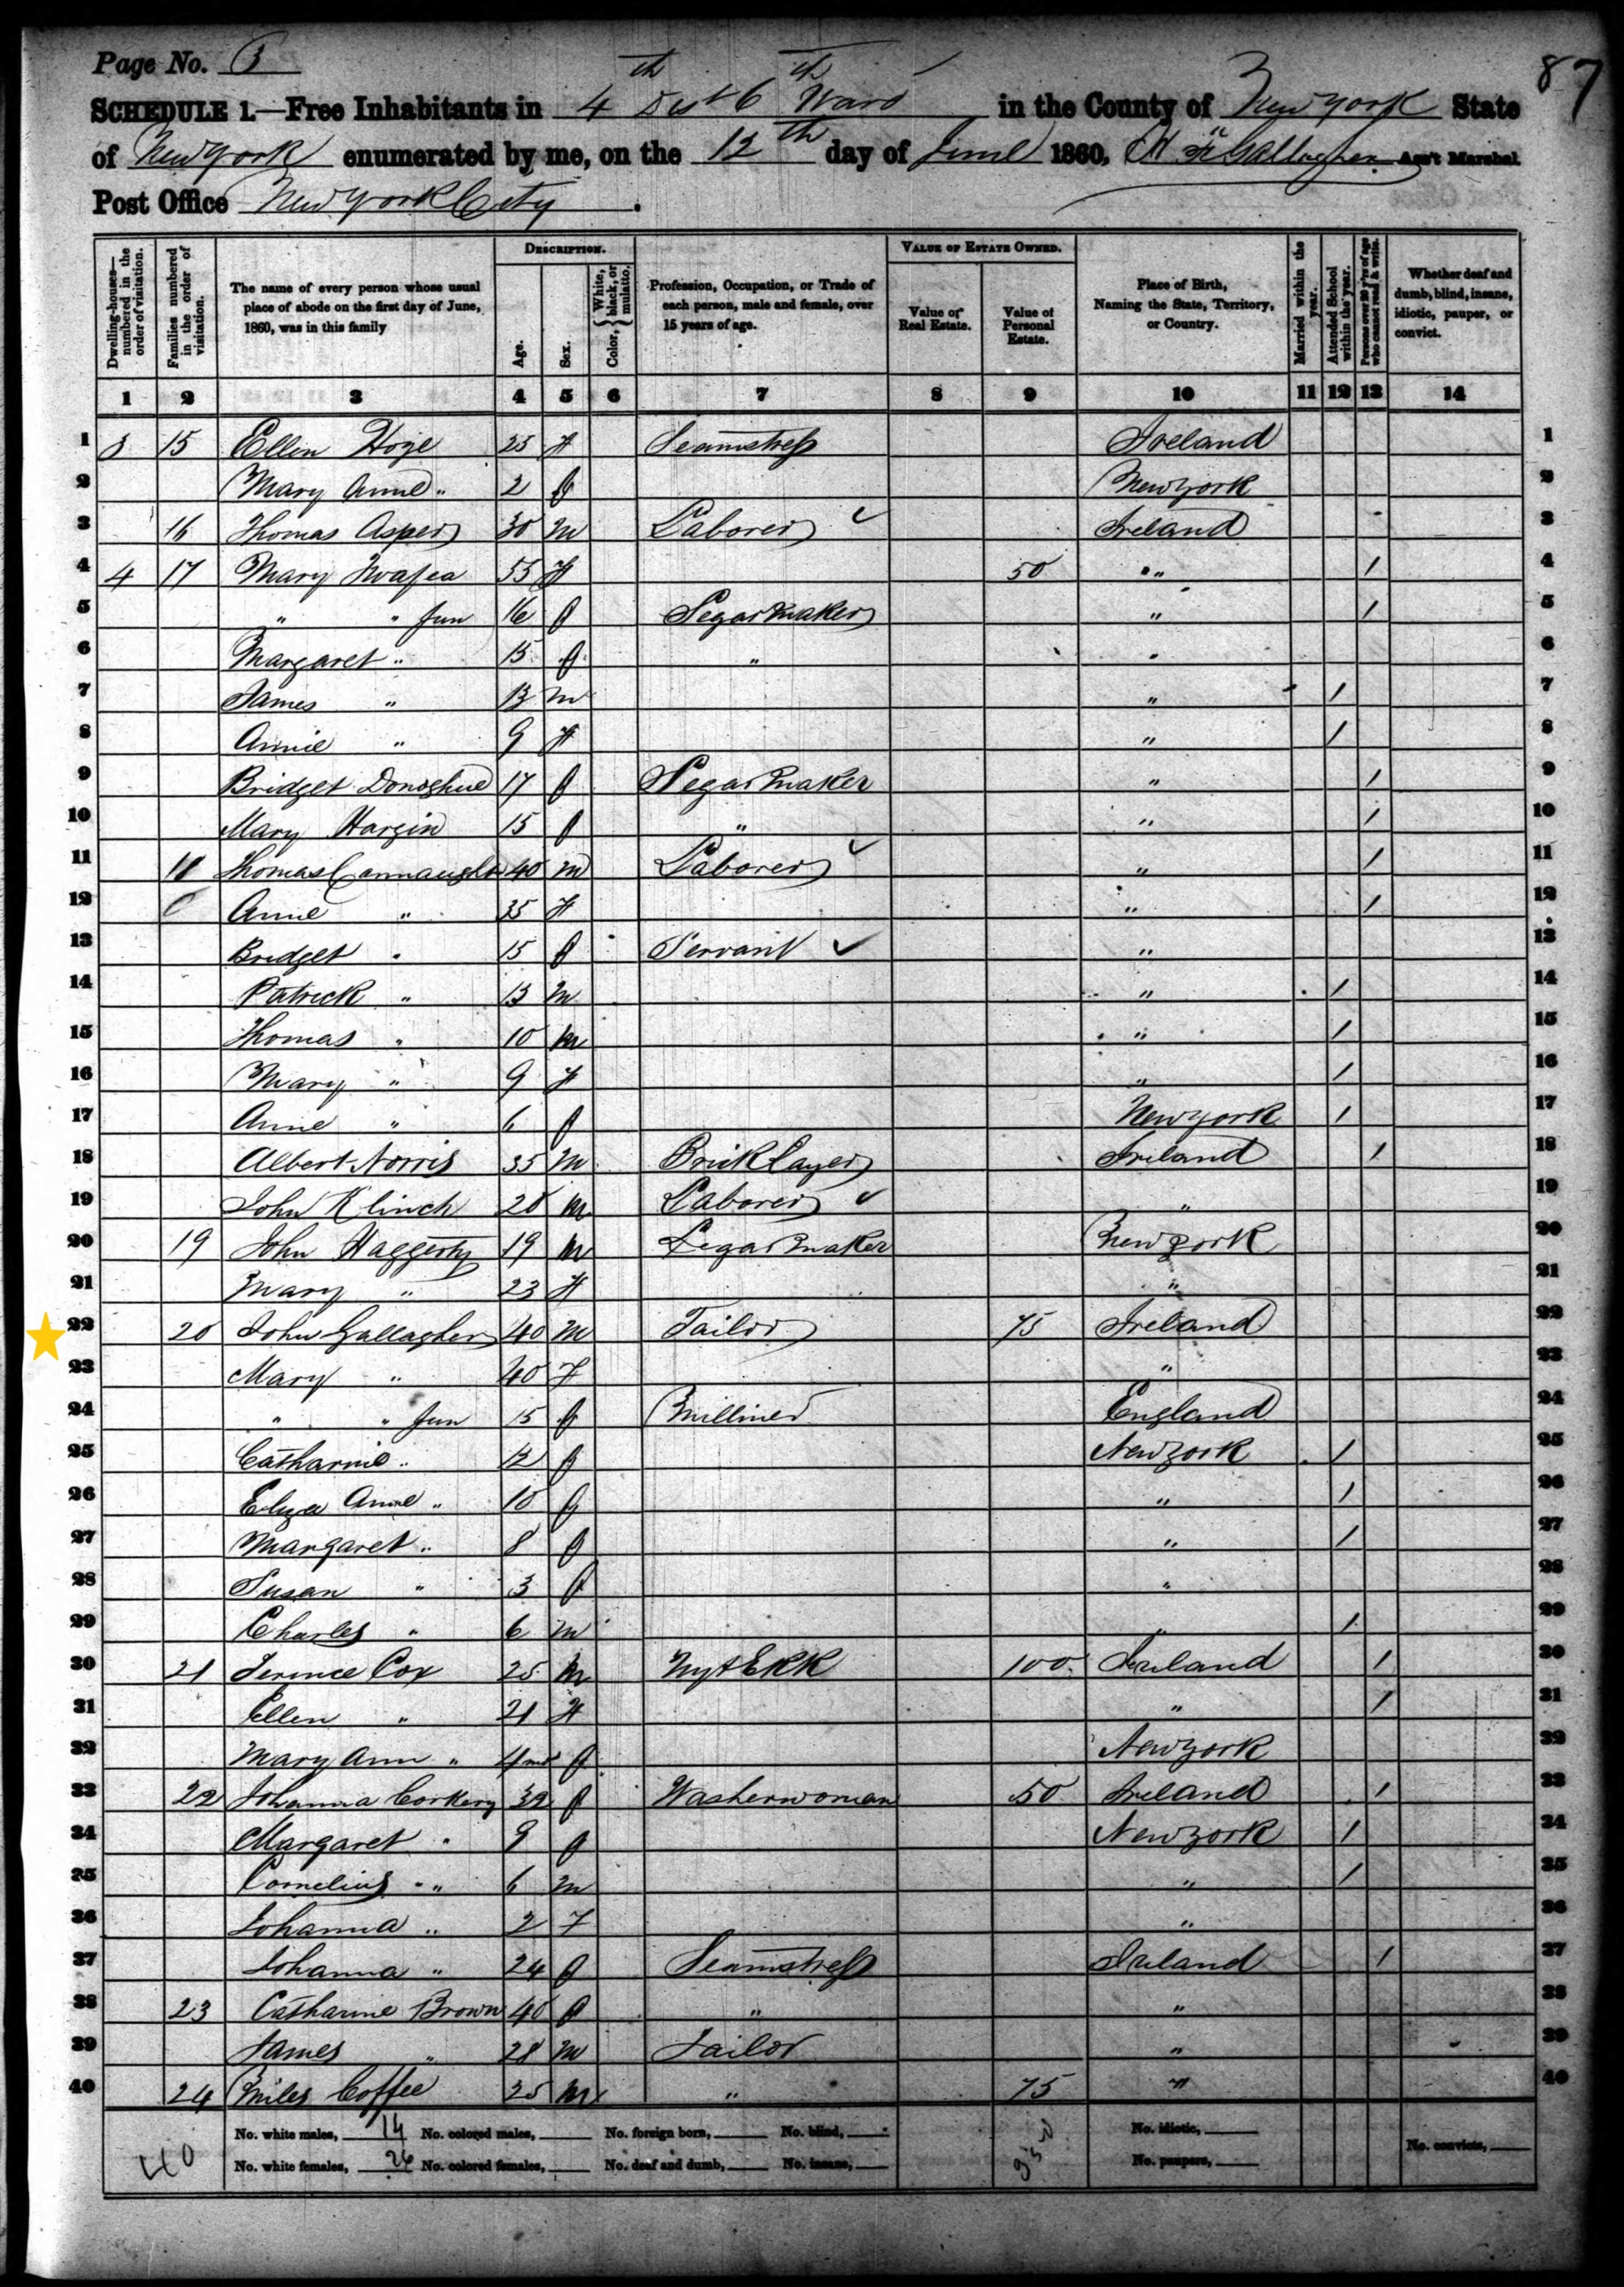 Page No. 3
87
SCHEDULE 1.—Free Inhabitants in 4th Dist 6th Ward in the County of New York State
of New York enumerated by me, on the 12th day of June 1860, Gallagher Ass't Marshal
Post Office New York City.
Dwelling-houses—numbered in the order of visitation.
Families numbered in the order of visitation.
The name of every person whose usual place of abode on the first day of June, 1860, was in this family
DESCRIPTION.
Age.
Sex.
Color, { White, black, or mulatto.
Profession, Occupation, or Trade of each person, male and female, over 15 years of age.
VALUE OF ESTATE OWNED.
Value of Real Estate.
Value of Personal Estate.
Place of Birth, Naming the State, Territory, or Country.
Married within the year.
Attended School within the year.
Persons over 20 y'rs of age who cannot read & write.
Whether deaf and dumb, blind, insane, idiotic, pauper, or convict.
1 2 3 4 5 6 7 8 9 10 11 12 13 14
1 3 15 Ellen 25 f Seamstress Ireland 1
2 Mary Anne " 2 f New York 2
3 16 Thomas Asper 30 m Laborer ✓ Ireland 3
4 4 17 Mary 55 f 50 " / 4
5 " " Jun 16 f Segar Maker " / 5
6 Margaret " 15 f " " 6
7 James " 13 m " / 7
8 Annie " 9 f " / 8
9 Bridget Donoghue 17 f Segar Maker " / 9
10 Mary Hargin 15 f " " / 10
11 18 Thomas Connaughton 40 m Laborer ✓ " / 11
12 Anne " 35 f " / 12
13 Bridget " 15 f Servant ✓ " 13
14 Patrick " 13 m " / 14
15 Thomas " 10 m " / 15
16 Mary " 9 f " / 16
17 Anne " 6 f New York / 17
18 Albert Norris 35 m Brick Layer Ireland / 18
19 John Klinch 28 m Laborer ✓ " 19
20 19 John Haggerty 19 m Segar Maker New York 20
21 Mary " 23 f " 21
22 20 John Gallagher 40 m Tailor 75 Ireland 22
23 Mary " 40 f " 23
24 " " Jun 15 f Milliner England 24
25 Catharine " 12 f New York / 25
26 Eliza Anne " 10 f " / 26
27 Margaret " 8 f " / 27
28 Susan " 3 f " 28
29 Charles " 6 m " / 29
30 21 Terence Cox 25 m 100 Ireland / 30
31 Ellen " 21 f " / 31
32 Mary Ann " 4 mos f New York 32
33 22 Johanna Corkery 32 f Washerwoman 50 Ireland / 33
34 Margaret " 9 f New York / 34
35 Cornelius " 6 m " / 35
36 Johanna " 2 f " 36
37 Johanna " 24 f Seamstress Ireland / 37
38 23 Catharine Brown 40 f " " 38
39 James " 28 m Tailor " 39
40 24 Miles Coffee 25 m " 75 " 40
40
No. white males, 14 No. colored males, No. foreign born, No. blind, 350 No. idiotic,
No. white females, 26 No. colored females, No. deaf and dumb, No. insane, No. paupers, No. convicts,